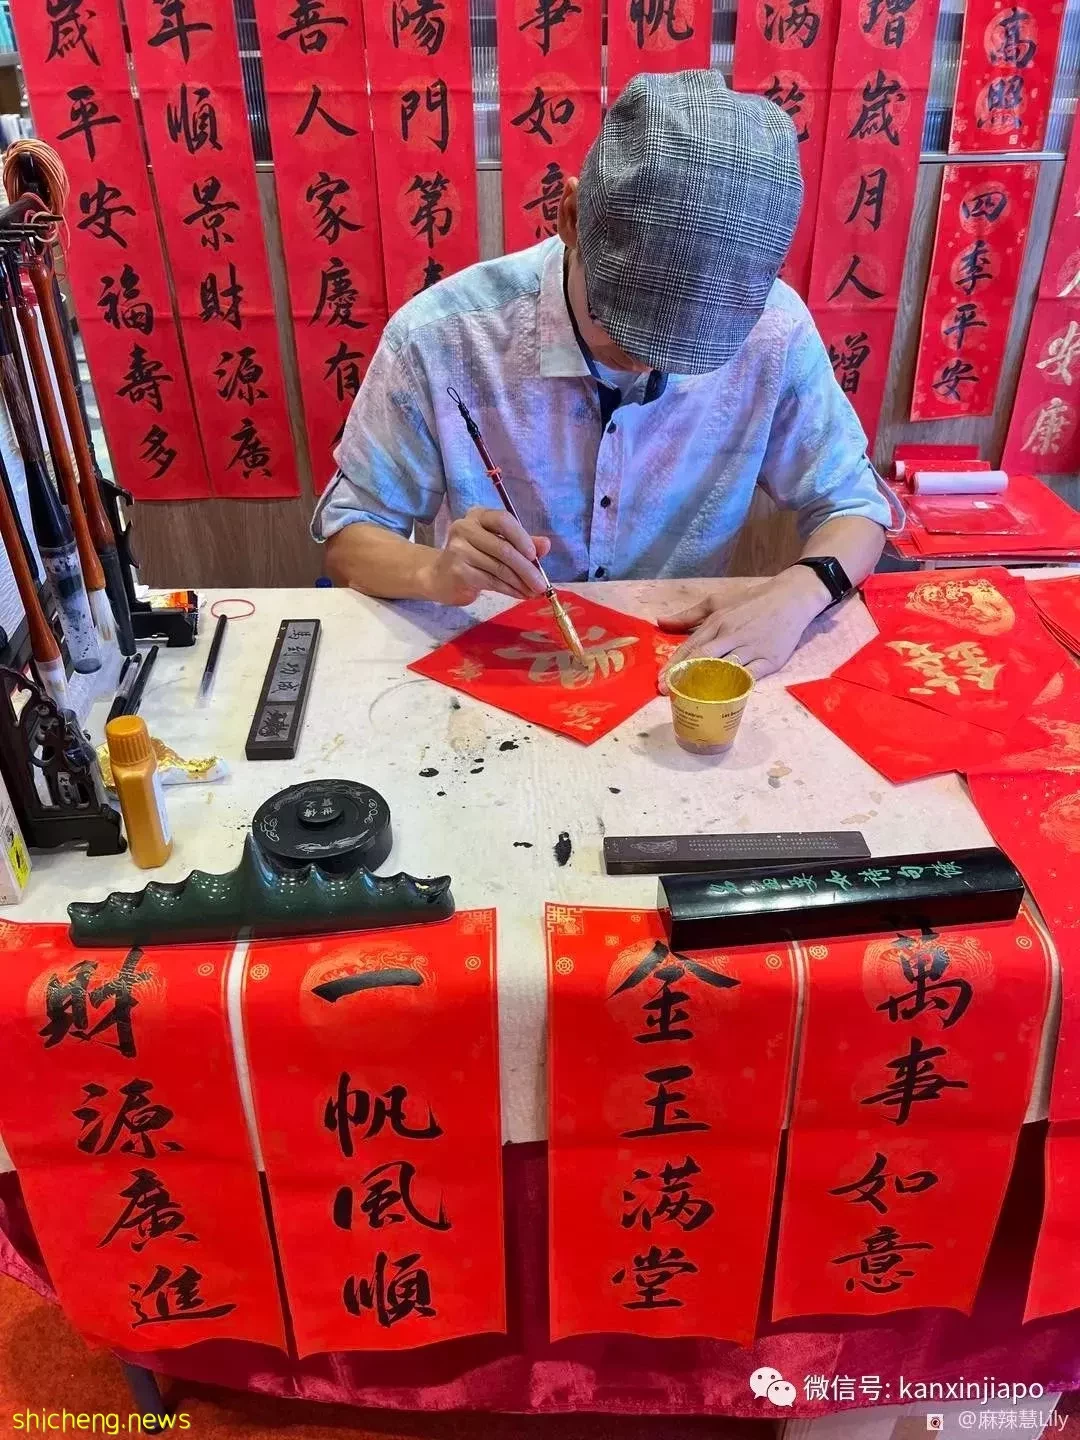 歲平安福壽多
年順景財源廣
善人家慶有
陽門第春
事如意
帆
满乾
增歲月人增
高照
四季平安
安康
馬到功成
世傳
財源廣進
一帆風順
金玉满堂
萬事如意
微信号: kanxinjiapo
@麻辣慧Lily
shicheng.news